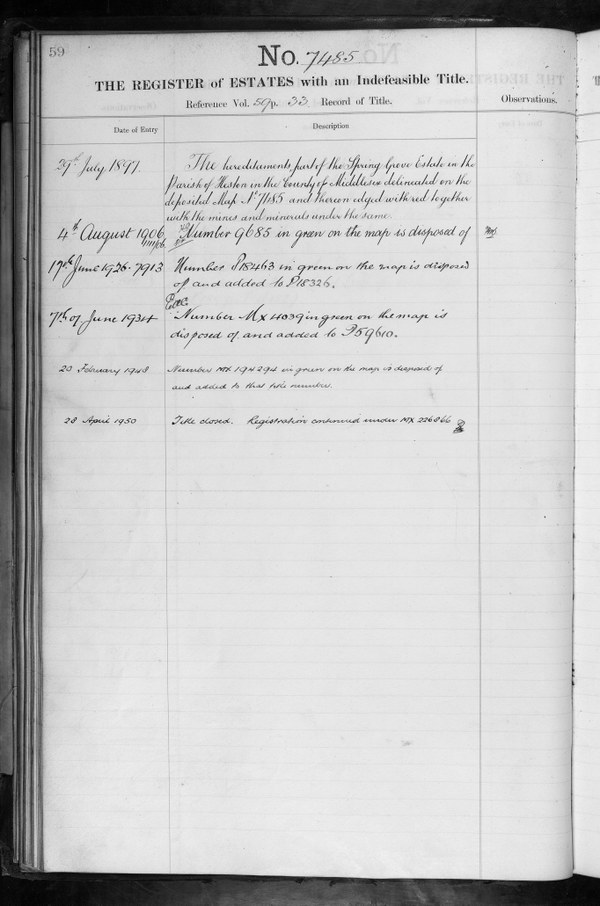 59
No. 7485
THE REGISTER of ESTATES with an Indefeasible Title.
Reference Vol. 59 p. 33 Record of Title.
Observations.
Date of Entry
Description
29th July 1897.
The hereditaments part of the Spring Grove Estate in the
Parish of Heston in the County of Middlesex delineated on the
deposited Map No 7485 and thereon edged with red together
with the mines and minerals under the same.
4th August 1906
Number 9685 in green on the map is disposed of
17th June 1926. 7913
Number P18463 in green on the map is disposed
of and added to P18326.
7th of June 1934
Number Mx 4039 in green on the map is
disposed of and added to P59610.
23 February 1948
Number MX 194294 in green on the map is disposed of
and added to that title number.
28 April 1950
Title closed. Registration continued under MX 226866